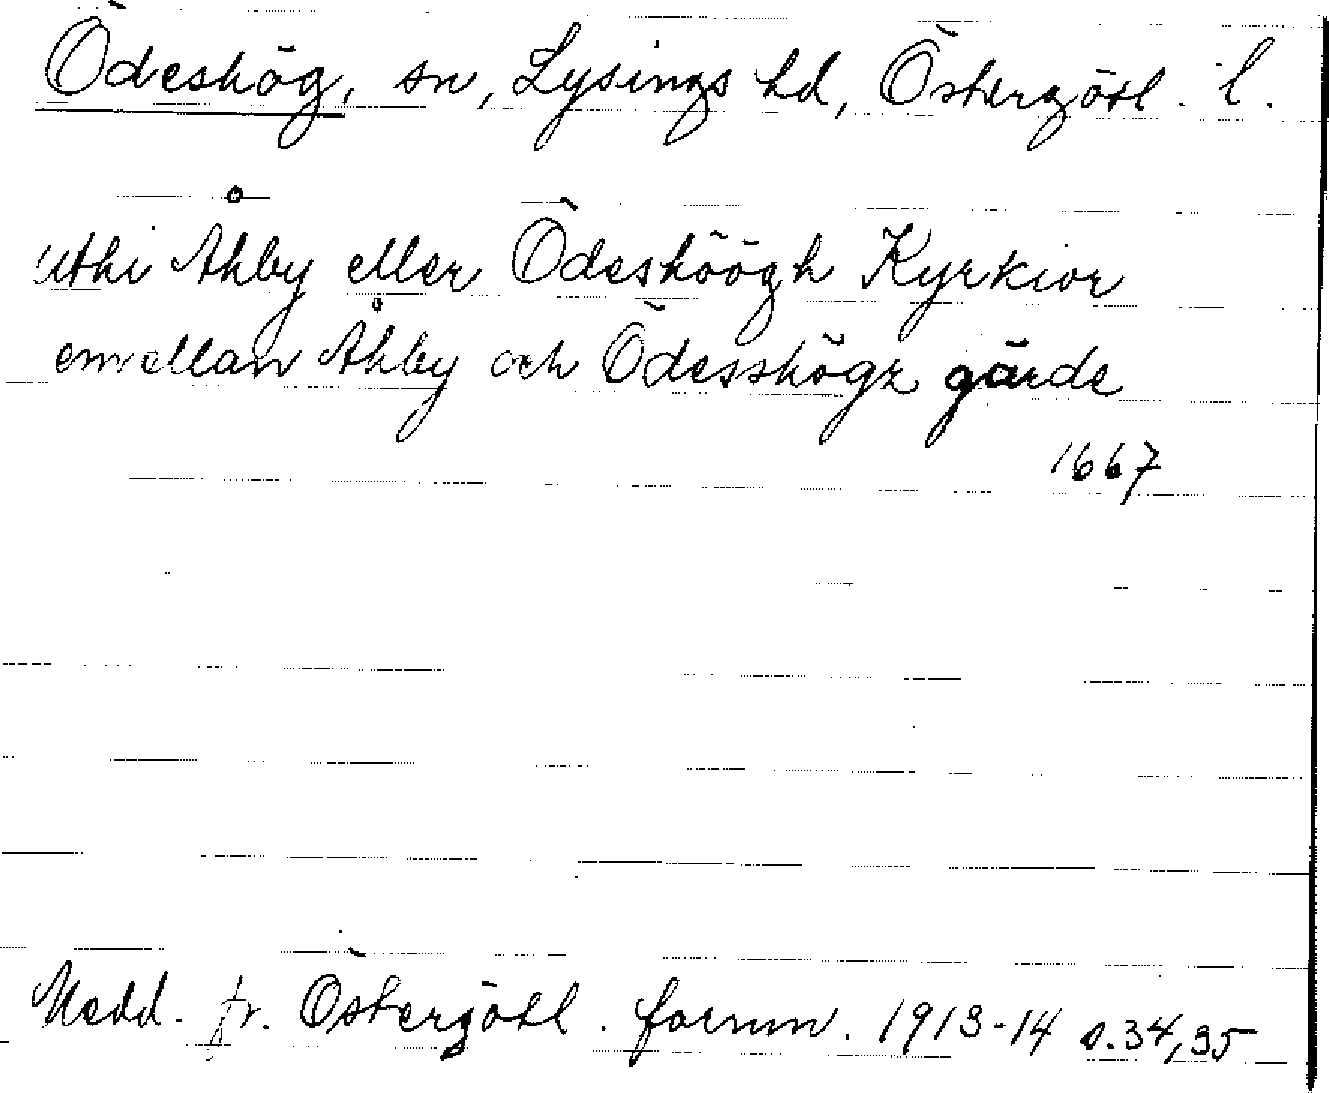 Ödeshög, sn, Lysings hd, Östergötl. l.
uthi Åhby eller Ödeshöögh Kyrkior
emellan Åhby och Ödesshögz gärde
1667
Medd. fr. Östergötl. fornm. 1913-14 s. 34, 35